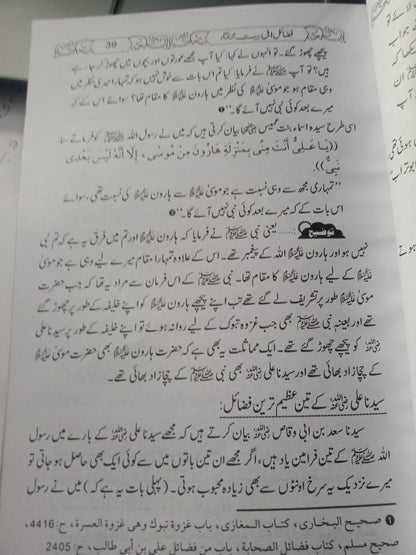 فضائل اہل بیت 39
پیچھے چھوڑ گئے۔ تو انہوں نے کہا: کیا آپ مجھے عورتوں اور بچوں میں چھوڑ کر جا رہے
ہیں؟ تو آپ ﷺ نے فرمایا: کیا تم اس بات سے خوش نہیں ہو کہ تمہارا میری نظر میں
وہی مقام ہو جو موسیٰ علیہ السلام کی نظر میں ہارون علیہ السلام کا مقام تھا؟ سوائے اس کے کہ
میرے بعد کوئی نبی نہیں آئے گا۔"❶
اسی طرح سیدہ اسماء بنت عمیس رضی اللہ عنہا بیان کرتی ہیں کہ میں نے رسول اللہ ﷺ کو فرماتے سنا:
((يَا عَلِيُّ أَنْتَ مِنِّي بِمَنْزِلَةِ هَارُونَ مِنْ مُوسَى، إِلَّا أَنَّهُ لَيْسَ بَعْدِي
نَبِيٌّ)).
"تمہاری مجھ سے وہی نسبت ہے جو موسیٰ علیہ السلام سے ہارون علیہ السلام کی نسبت تھی، سوائے
اس بات کے کہ میرے بعد کوئی نبی نہیں آئے گا۔"❷
توضیح :..... یعنی نبی ﷺ نے فرمایا کہ ہارون علیہ السلام اور تم میں فرق یہ ہے کہ تم نبی
نہیں ہو اور ہارون علیہ السلام اللہ کے پیغمبر تھے۔ اس کے علاوہ تمہارا مقام میرے لیے وہی ہے جو موسیٰ
علیہ السلام کے لیے ہارون علیہ السلام کا مقام تھا۔ نبی ﷺ کے اس فرمان سے مراد یہ تھا کہ جب حضرت
موسیٰ علیہ السلام طور پر تشریف لے گئے تھے تب اپنے پیچھے ہارون علیہ السلام کو اپنے خلیفہ کے طور پر چھوڑ گئے
تھے اور بعینہٖ نبی ﷺ بھی جب غزوہ تبوک کے لیے روانہ ہوئے تو اپنے خلیفہ کے طور پر سیدنا علی
رضی اللہ عنہ کو پیچھے چھوڑ گئے تھے۔ ایک مماثلت یہ بھی ہے کہ حضرت ہارون علیہ السلام بھی حضرت موسیٰ علیہ السلام
کے چچا زاد بھائی تھے اور سیدنا علی رضی اللہ عنہ بھی نبی ﷺ کے چچا زاد بھائی تھے۔
سیدنا علی رضی اللہ عنہ کے تین عظیم ترین فضائل:
سیدنا سعد بن ابی وقاص رضی اللہ عنہ بیان کرتے ہیں کہ مجھے سیدنا علی رضی اللہ عنہ کے بارے میں رسول
اللہ ﷺ کے تین فرامین یاد ہیں، اگر مجھے ان تین باتوں میں سے کوئی ایک بھی حاصل ہو جاتی تو
میرے نزدیک یہ سرخ اونٹوں سے بھی زیادہ محبوب ہوتی۔ (پہلی بات یہ ہے کہ) میں نے رسول
❶ صحيح البخارى، كتاب المغازى، باب غزوة تبوك وهى غزوة العسرة، ح: 4416،
صحيح مسلم، كتاب فضائل الصحابة، باب من فضائل على بن أبى طالب، ح: 2405